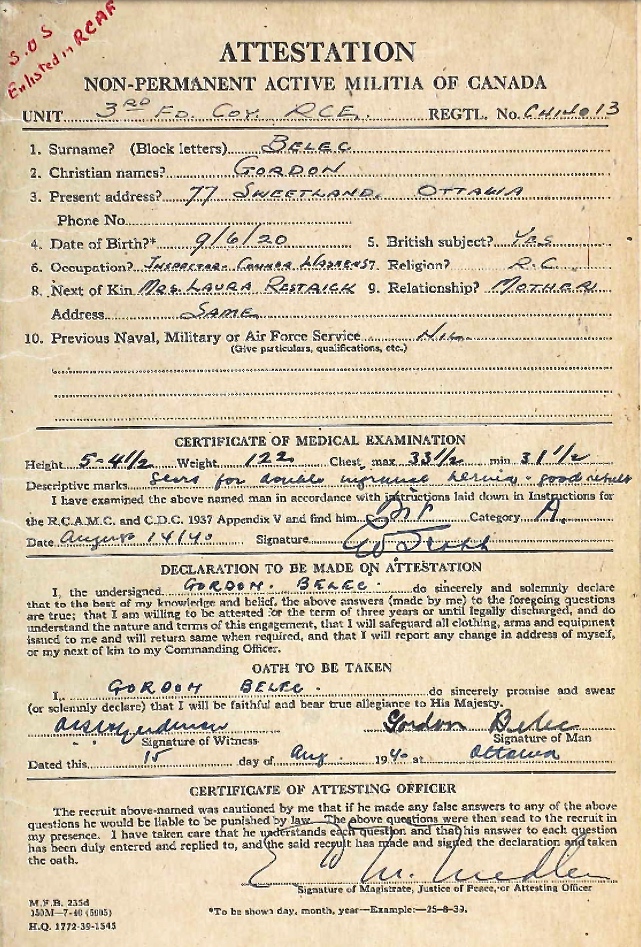 S.O.S
Enlisted in RCAF
ATTESTATION
NON-PERMANENT ACTIVE MILITIA OF CANADA
UNIT 3RD FD. COY. RCE. REGTL. No.
1. Surname? (Block letters) BELEC
2. Christian names? GORDON
3. Present address? 77 SWEETLAND. OTTAWA
Phone No.
4. Date of Birth?* 9/6/20 5. British subject? YES
6. Occupation? INSPECTOR 7. Religion? R.C.
8. Next of Kin MRS. LAURA RESTRICK 9. Relationship? MOTHER
Address SAME
10. Previous Naval, Military or Air Force Service NIL
(Give particulars, qualifications, etc.)
CERTIFICATE OF MEDICAL EXAMINATION
Height 5-4 1/2 Weight 122 Chest, max 33 1/2 min 31 1/2
Descriptive marks Scars for double hernia - good result
I have examined the above named man in accordance with instructions laid down in Instructions for
the R.C.A.M.C. and C.D.C. 1937 Appendix V and find him Fit Category A.
Date August 14/40 Signature
DECLARATION TO BE MADE ON ATTESTATION
I, the undersigned GORDON. BELEC. do sincerely and solemnly declare
that to the best of my knowledge and belief, the above answers (made by me) to the foregoing questions
are true; that I am willing to be attested for the term of three years or until legally discharged, and do
understand the nature and terms of this engagement, that I will safeguard all clothing, arms and equipment
issued to me and will return same when required, and that I will report any change in address of myself,
or my next of kin to my Commanding Officer.
OATH TO BE TAKEN
I, GORDON BELEC. do sincerely promise and swear
(or solemnly declare) that I will be faithful and bear true allegiance to His Majesty.
Gordon Belec
Signature of Witness Signature of Man
Dated this 15 day of Aug. 1940 at Ottawa
CERTIFICATE OF ATTESTING OFFICER
The recruit above-named was cautioned by me that if he made any false answers to any of the above
questions he would be liable to be punished by law. The above questions were then read to the recruit in
my presence. I have taken care that he understands each question and that his answer to each question
has been duly entered and replied to, and the said recruit has made and signed the declaration and taken
the oath.
Signature of Magistrate, Justice of Peace, or Attesting Officer
M.F.B. 235d
150M-7-40 (5005)
H.Q. 1772-39-1545
*To be shown day, month, year—Example:—25-8-39.